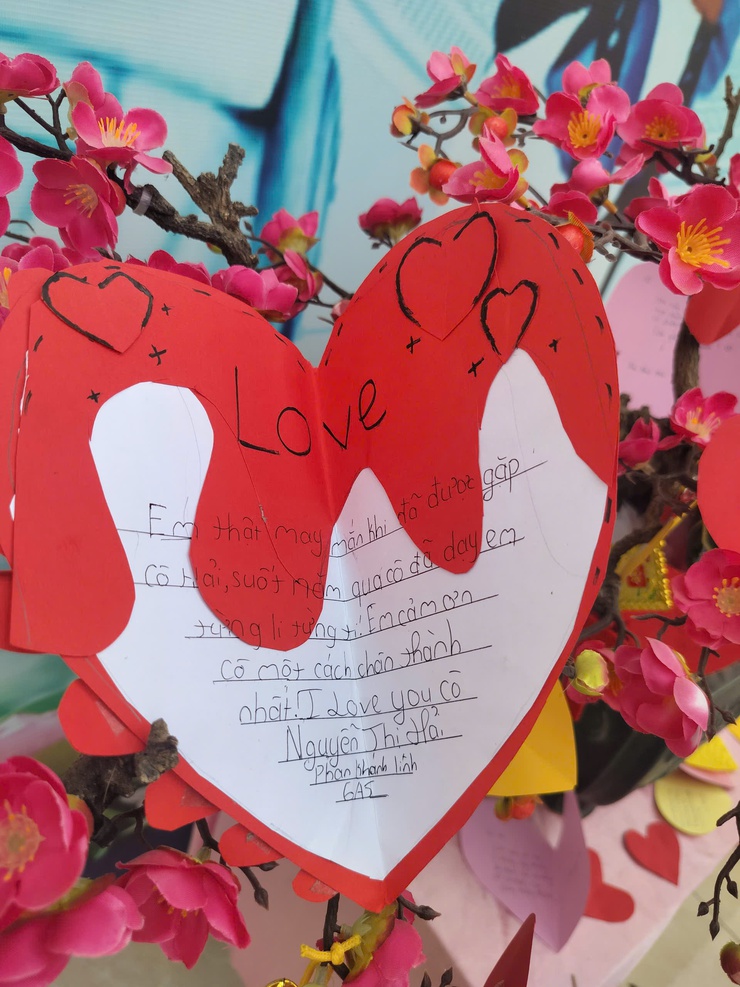 Love
Em thật may mắn khi đã được gặp
cô Hải, suốt năm qua cô đã dạy em
từng li từng tí. Em cảm ơn
cô một cách chân thành
nhất! I Love you cô
Nguyễn Thị Hải
Phan Khánh linh
6A5